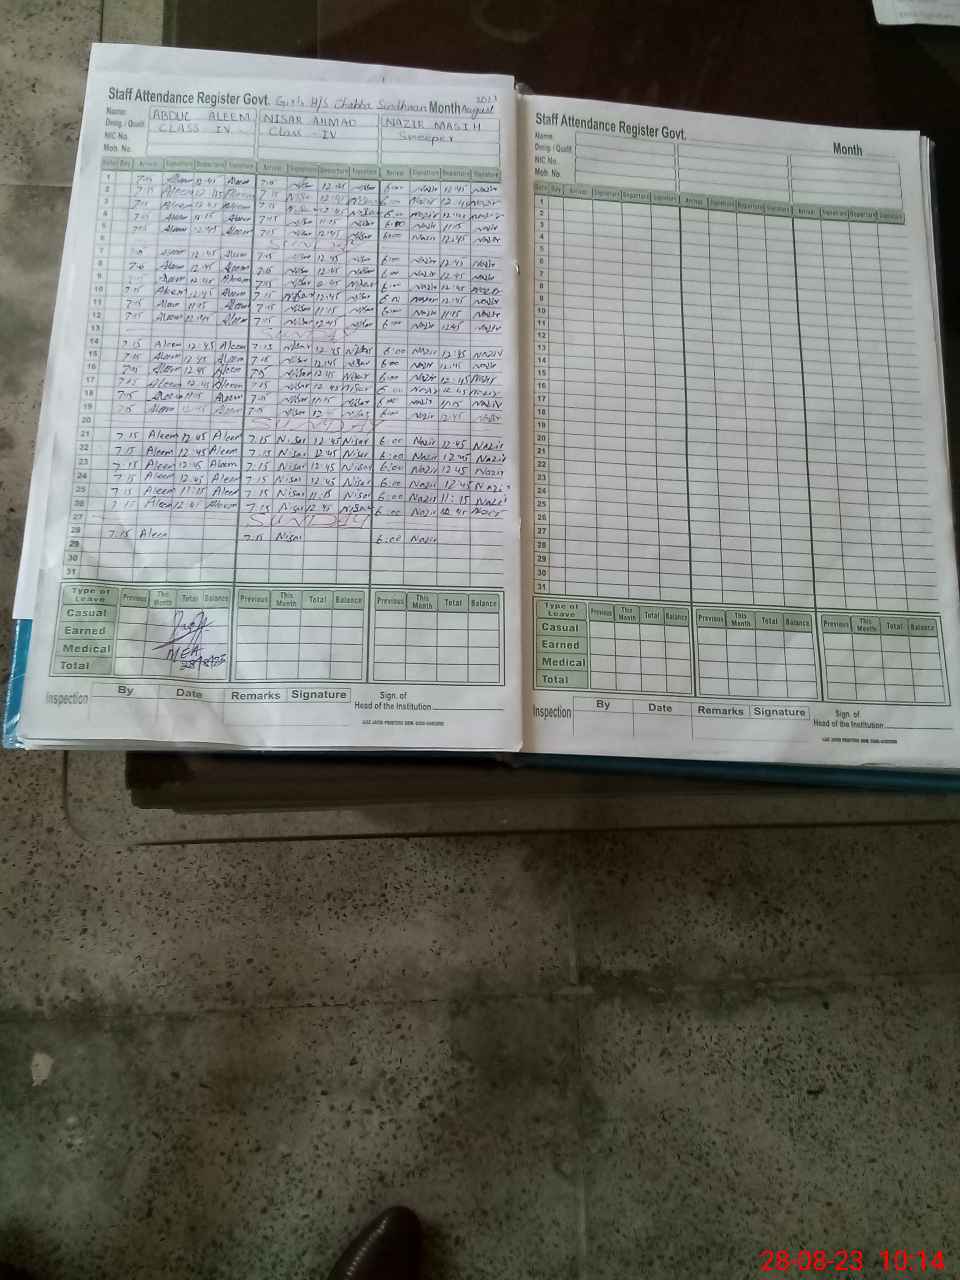 Staff Attendance Register Govt. Girls H/S Chabba Sindhwan Month August 2023
Name: ABDUL ALEEM NISAR AHMAD NAZIR MASIH
Desig./Qualif. CLASS IV Class-IV Sweeper
NIC No.
Mob. No.
Date Day Arrival Signature Departure Signature Arrival Signature Departure Signature Arrival Signature Departure Signature
1 7:15 Aleem 12:45 Aleem 7:15 Nisar 12:45 Nisar 6:00 Nazir 12:45 Nazir
2 7:15 Aleem 12:45 Aleem 7:15 Nisar 12:45 Nisar 6:00 Nazir 12:45 Nazir
3 7:15 Aleem 12:45 Aleem 7:15 Nisar 12:45 Nisar 6:00 Nazir 12:45 Nazir
4 7:15 Aleem 11:15 Aleem 7:15 Nisar 11:15 Nisar 6:00 Nazir 11:15 Nazir
5 7:15 Aleem 12:45 Aleem 7:15 Nisar 12:45 Nisar 6:00 Nazir 12:45 Nazir
6 SUNDAY
7 7:15 Aleem 12:45 Aleem 7:15 Nisar 12:45 Nisar 6:00 Nazir 12:45 Nazir
8 7:15 Aleem 12:45 Aleem 7:15 Nisar 12:45 Nisar 6:00 Nazir 12:45 Nazir
9 7:15 Aleem 12:45 Aleem 7:15 Nisar 12:45 Nisar 6:00 Nazir 12:45 Nazir
10 7:15 Aleem 12:45 Aleem 7:15 Nisar 12:45 Nisar 6:00 Nazir 12:45 Nazir
11 7:15 Aleem 11:15 Aleem 7:15 Nisar 11:15 Nisar 6:00 Nazir 11:15 Nazir
12 7:15 Aleem 12:45 Aleem 7:15 Nisar 12:45 Nisar 6:00 Nazir 12:45 Nazir
13 SUNDAY
14 7:15 Aleem 12:45 Aleem 7:15 Nisar 12:45 Nisar 6:00 Nazir 12:45 Nazir
15 7:15 Aleem 12:45 Aleem 7:15 Nisar 12:45 Nisar 6:00 Nazir 12:45 Nazir
16 7:15 Aleem 12:45 Aleem 7:15 Nisar 12:45 Nisar 6:00 Nazir 12:45 Nazir
17 7:15 Aleem 12:45 Aleem 7:15 Nisar 12:45 Nisar 6:00 Nazir 12:45 Nazir
18 7:15 Aleem 11:15 Aleem 7:15 Nisar 11:15 Nisar 6:00 Nazir 11:15 Nazir
19 7:15 Aleem 12:45 Aleem 7:15 Nisar 12:45 Nisar 6:00 Nazir 12:45 Nazir
20 SUNDAY
21 7:15 Aleem 12:45 Aleem 7:15 Nisar 12:45 Nisar 6:00 Nazir 12:45 Nazir
22 7:15 Aleem 12:45 Aleem 7:15 Nisar 12:45 Nisar 6:00 Nazir 12:45 Nazir
23 7:15 Aleem 12:45 Aleem 7:15 Nisar 12:45 Nisar 6:00 Nazir 12:45 Nazir
24 7:15 Aleem 12:45 Aleem 7:15 Nisar 12:45 Nisar 6:00 Nazir 12:45 Nazir
25 7:15 Aleem 11:15 Aleem 7:15 Nisar 11:15 Nisar 6:00 Nazir 11:15 Nazir
26 7:15 Aleem 12:45 Aleem 7:15 Nisar 12:45 Nisar 6:00 Nazir 12:45 Nazir
27 SUNDAY
28 7:15 Aleem 7:15 Nisar 6:00 Nazir
29
30
31
Type of Leave Previous This Month Total Balance Previous This Month Total Balance Previous This Month Total Balance
Casual
Earned
Medical MEA
Total 28-8-23
Inspection By Date Remarks Signature Sign. of Head of the Institution
Staff Attendance Register Govt. Month
Name:
Desig./Qualif.
NIC No.
Mob. No.
Date Day Arrival Signature Departure Signature Arrival Signature Departure Signature Arrival Signature Departure Signature
1
2
3
4
5
6
7
8
9
10
11
12
13
14
15
16
17
18
19
20
21
22
23
24
25
26
27
28
29
30
31
Type of Leave Previous This Month Total Balance Previous This Month Total Balance Previous This Month Total Balance
Casual
Earned
Medical
Total
Inspection By Date Remarks Signature Sign. of Head of the Institution
28-08-23 10:14